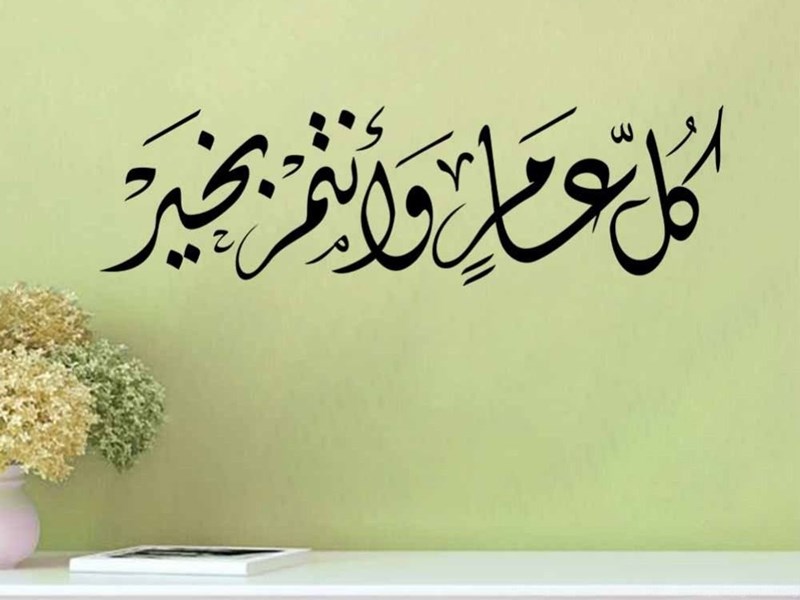 كُلّ عَامٍ وَأنتم بخيرَ